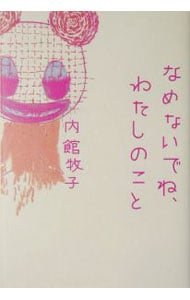 なめないでね、
わたしのこと
内館牧子